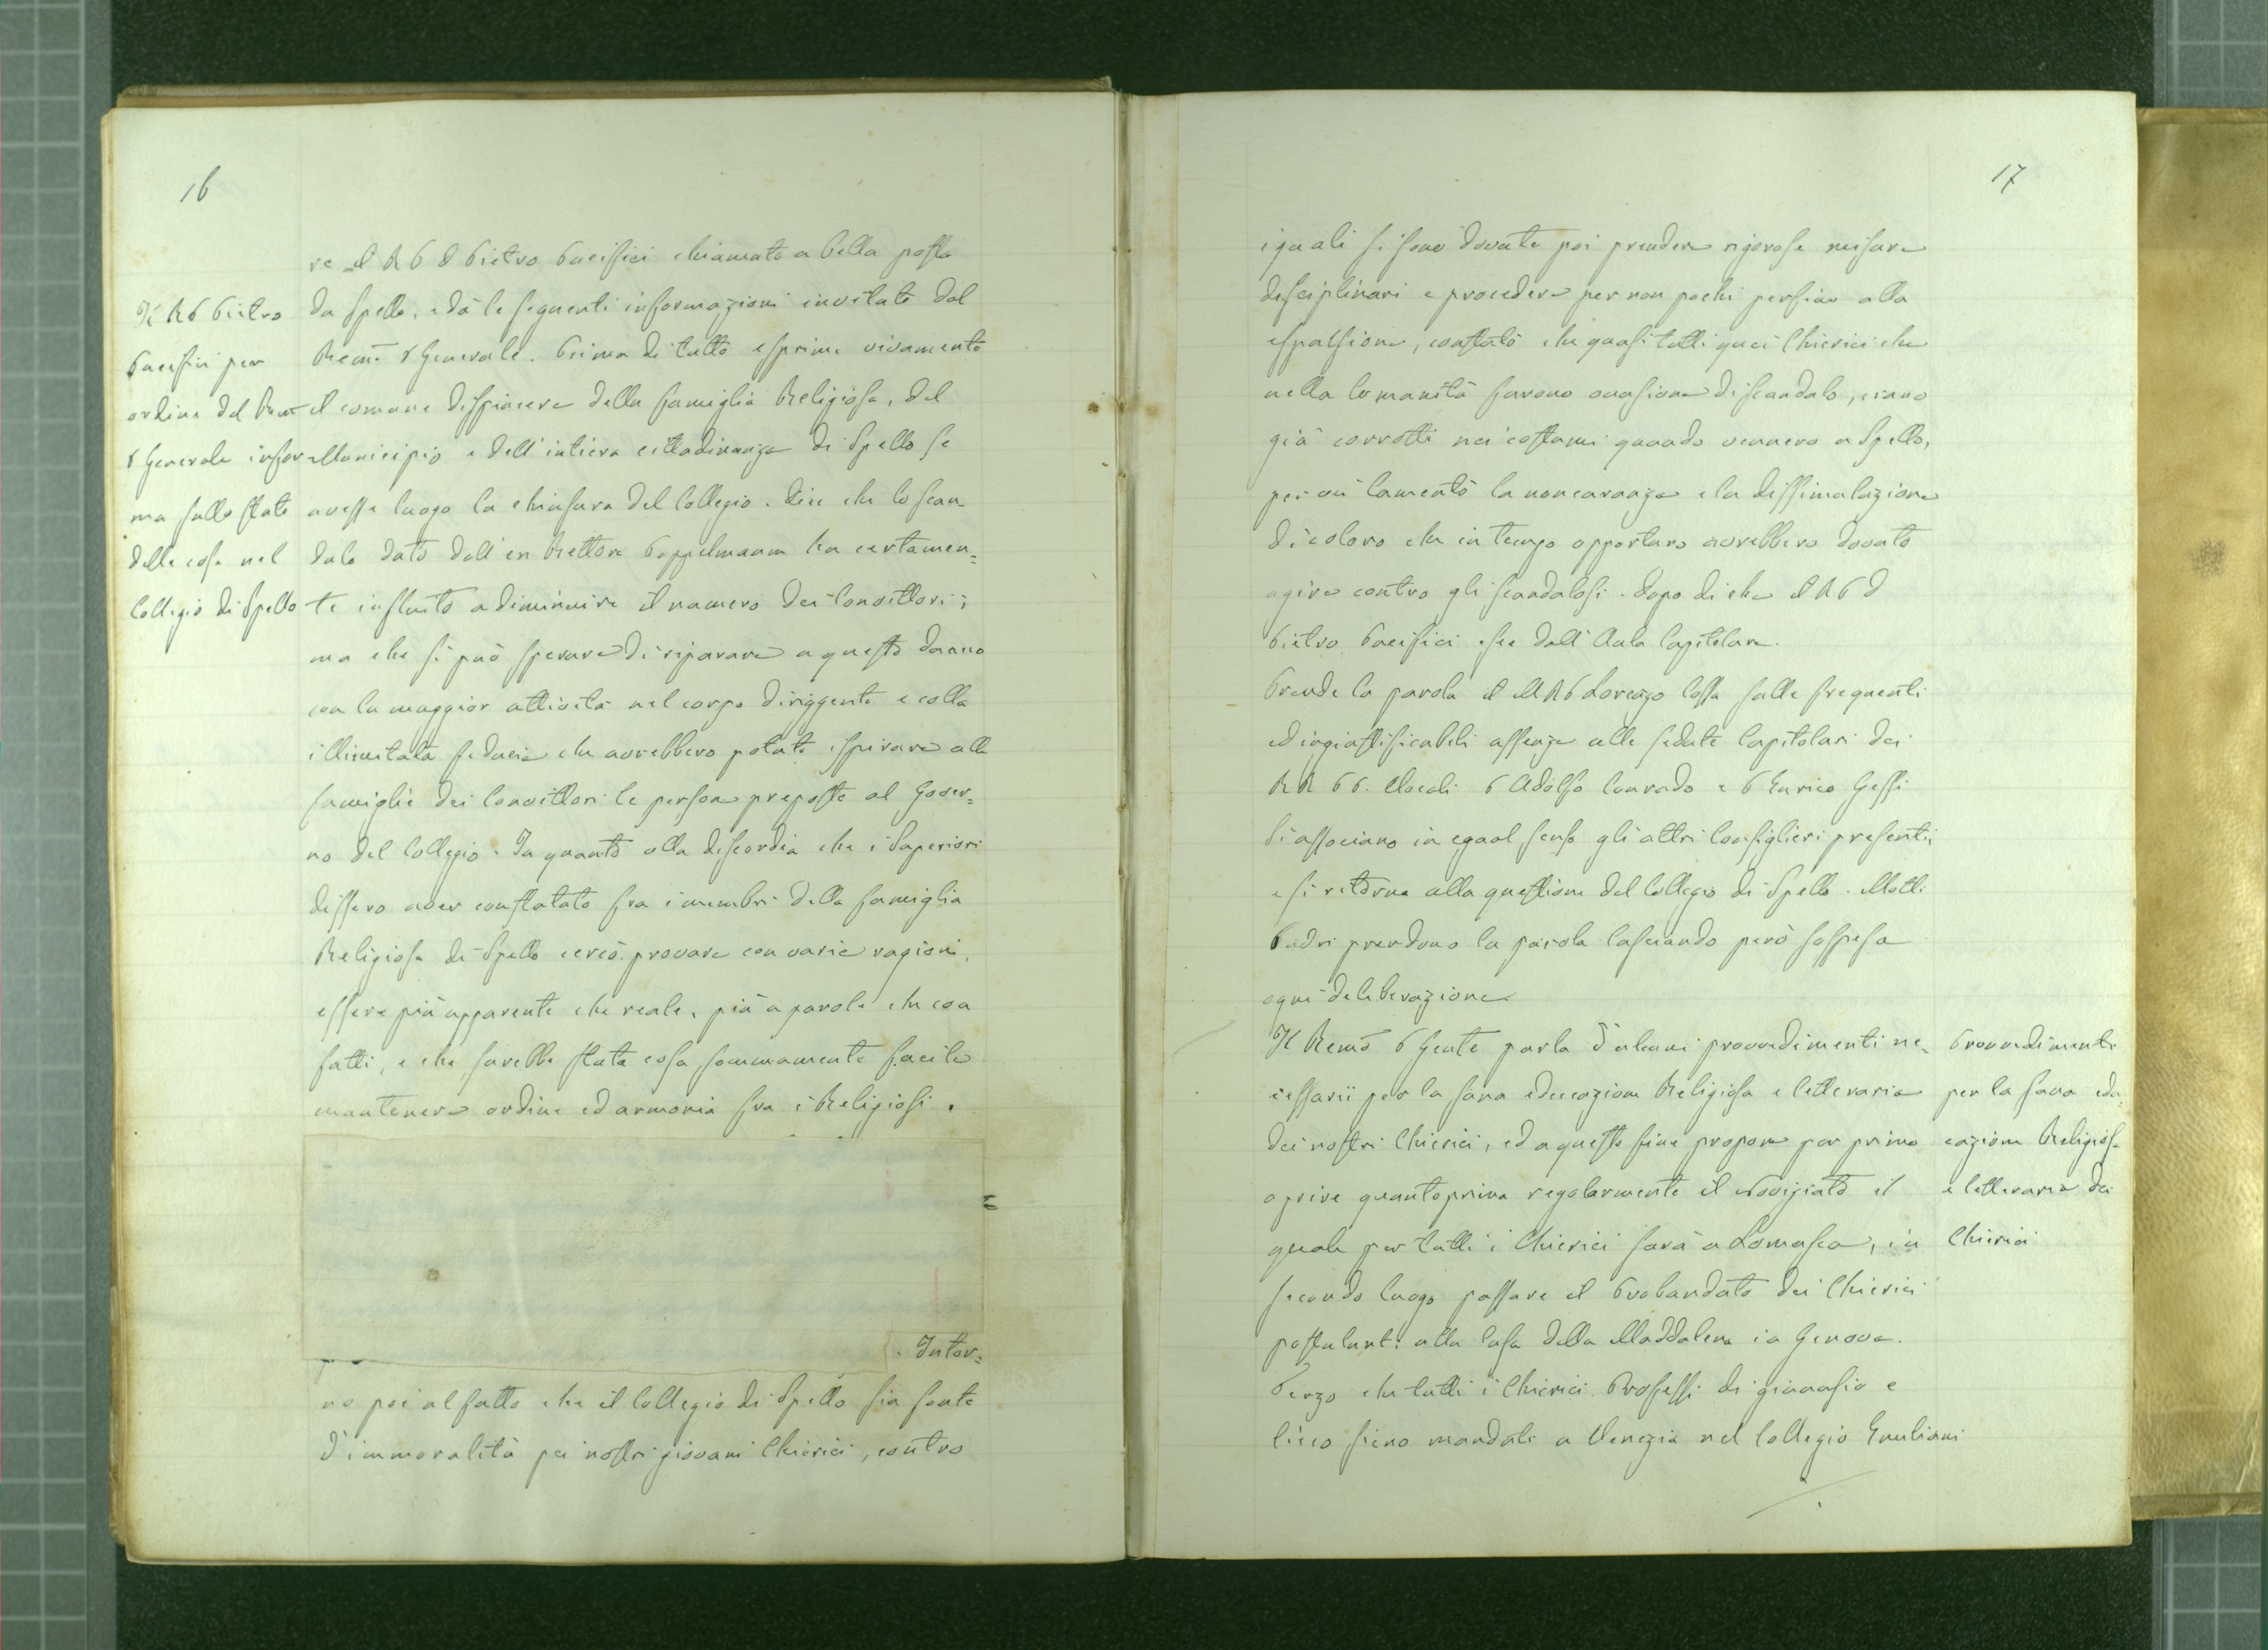 16
Il R P Pietro
Pacifici per
ordine del Rmo
P Generale infor
ma sullo stato
delle cose nel
Collegio di Spello
re il R P D Pietro Pacifici chiamato a bella posta
da Spello, e dà le seguenti informazioni invitato dal
Remo P Generale. Prima di tutto esprime vivamente
il comune dispiacere della famiglia Religiosa, del
Municipio e dell'intiera cittadinanza di Spello se
avesse luogo la chiusura del Collegio. Dice che lo scan-
dalo dato dall'ex Rettore Poppelmann ha certamen=
te influito a diminuire il numero dei Convittori;
ma che si può sperare di riparare a questo danno
con la maggior attività nel corpo diriggente e colla
illimitata fiducia che avrebbero potuto ispirare alle
famiglie dei Convittori le persone preposte al Gover=
no del Collegio. In quanto alla discordia che i Superiori
dissero aver constatato fra i membri della famiglia
Religiosa di Spello cercò provare con varie ragioni,
essere più apparente che reale, più a parole che con
fatti, e che sarebbe stata cosa sommamente facile
mantenere ordine ed armonia fra i Religiosi.
. Intor=
no poi al fatto che il Collegio di Spello sia fonte
d'immoralità pei nostri giovani Chierici, contro
17
i quali si sono dovute poi prendere rigorose misure
disciplinari e procedere per non pochi persino alla
espulsione, constatò che quasi tutti quei Chierici che
nella Comunità furono occasione di scandalo, erano
già corrotti nei costumi quando vennero a Spello,
per cui lamentò la noncuranza e la dissimulazione
di coloro che in tempo opportuno avrebbero dovuto
agire contro gli scandalosi. Dopo di che il R P D
Pietro Pacifici esce dall'Aula Capitolare.
Prende la parola il M R P Lorenzo Cossa sulle frequenti
ed ingiustificabili assenze alle sedute Capitolari dei
RR PP. Vocali P Adolfo Conrado e P Enrico Gessi
Si associano in egual senso gli altri Consiglieri presenti;
e si ritorna alla questione del Collegio di Spello. Molti
Padri prendono la parola lasciando però sospesa
ogni deliberazione.
Il Remo P Gente parla d'alcuni provvedimenti ne-
cessarii per la sana educazione Religiosa e letteraria
dei nostri Chierici, ed a questo fine propone per primo
aprire quantoprima regolarmente il Noviziato il
quale per tutti i Chierici sarà a Somasca, in
secondo luogo passare il Probandato dei Chierici
postulanti alla Casa della Maddalena in Genova.
Terzo che tutti i Chierici Professi di ginnasio e
liceo sieno mandati a Venezia nel Collegio Emiliani
Provvedimenti
per la sana edu=
cazione Religiosa
e letteraria dei
Chierici